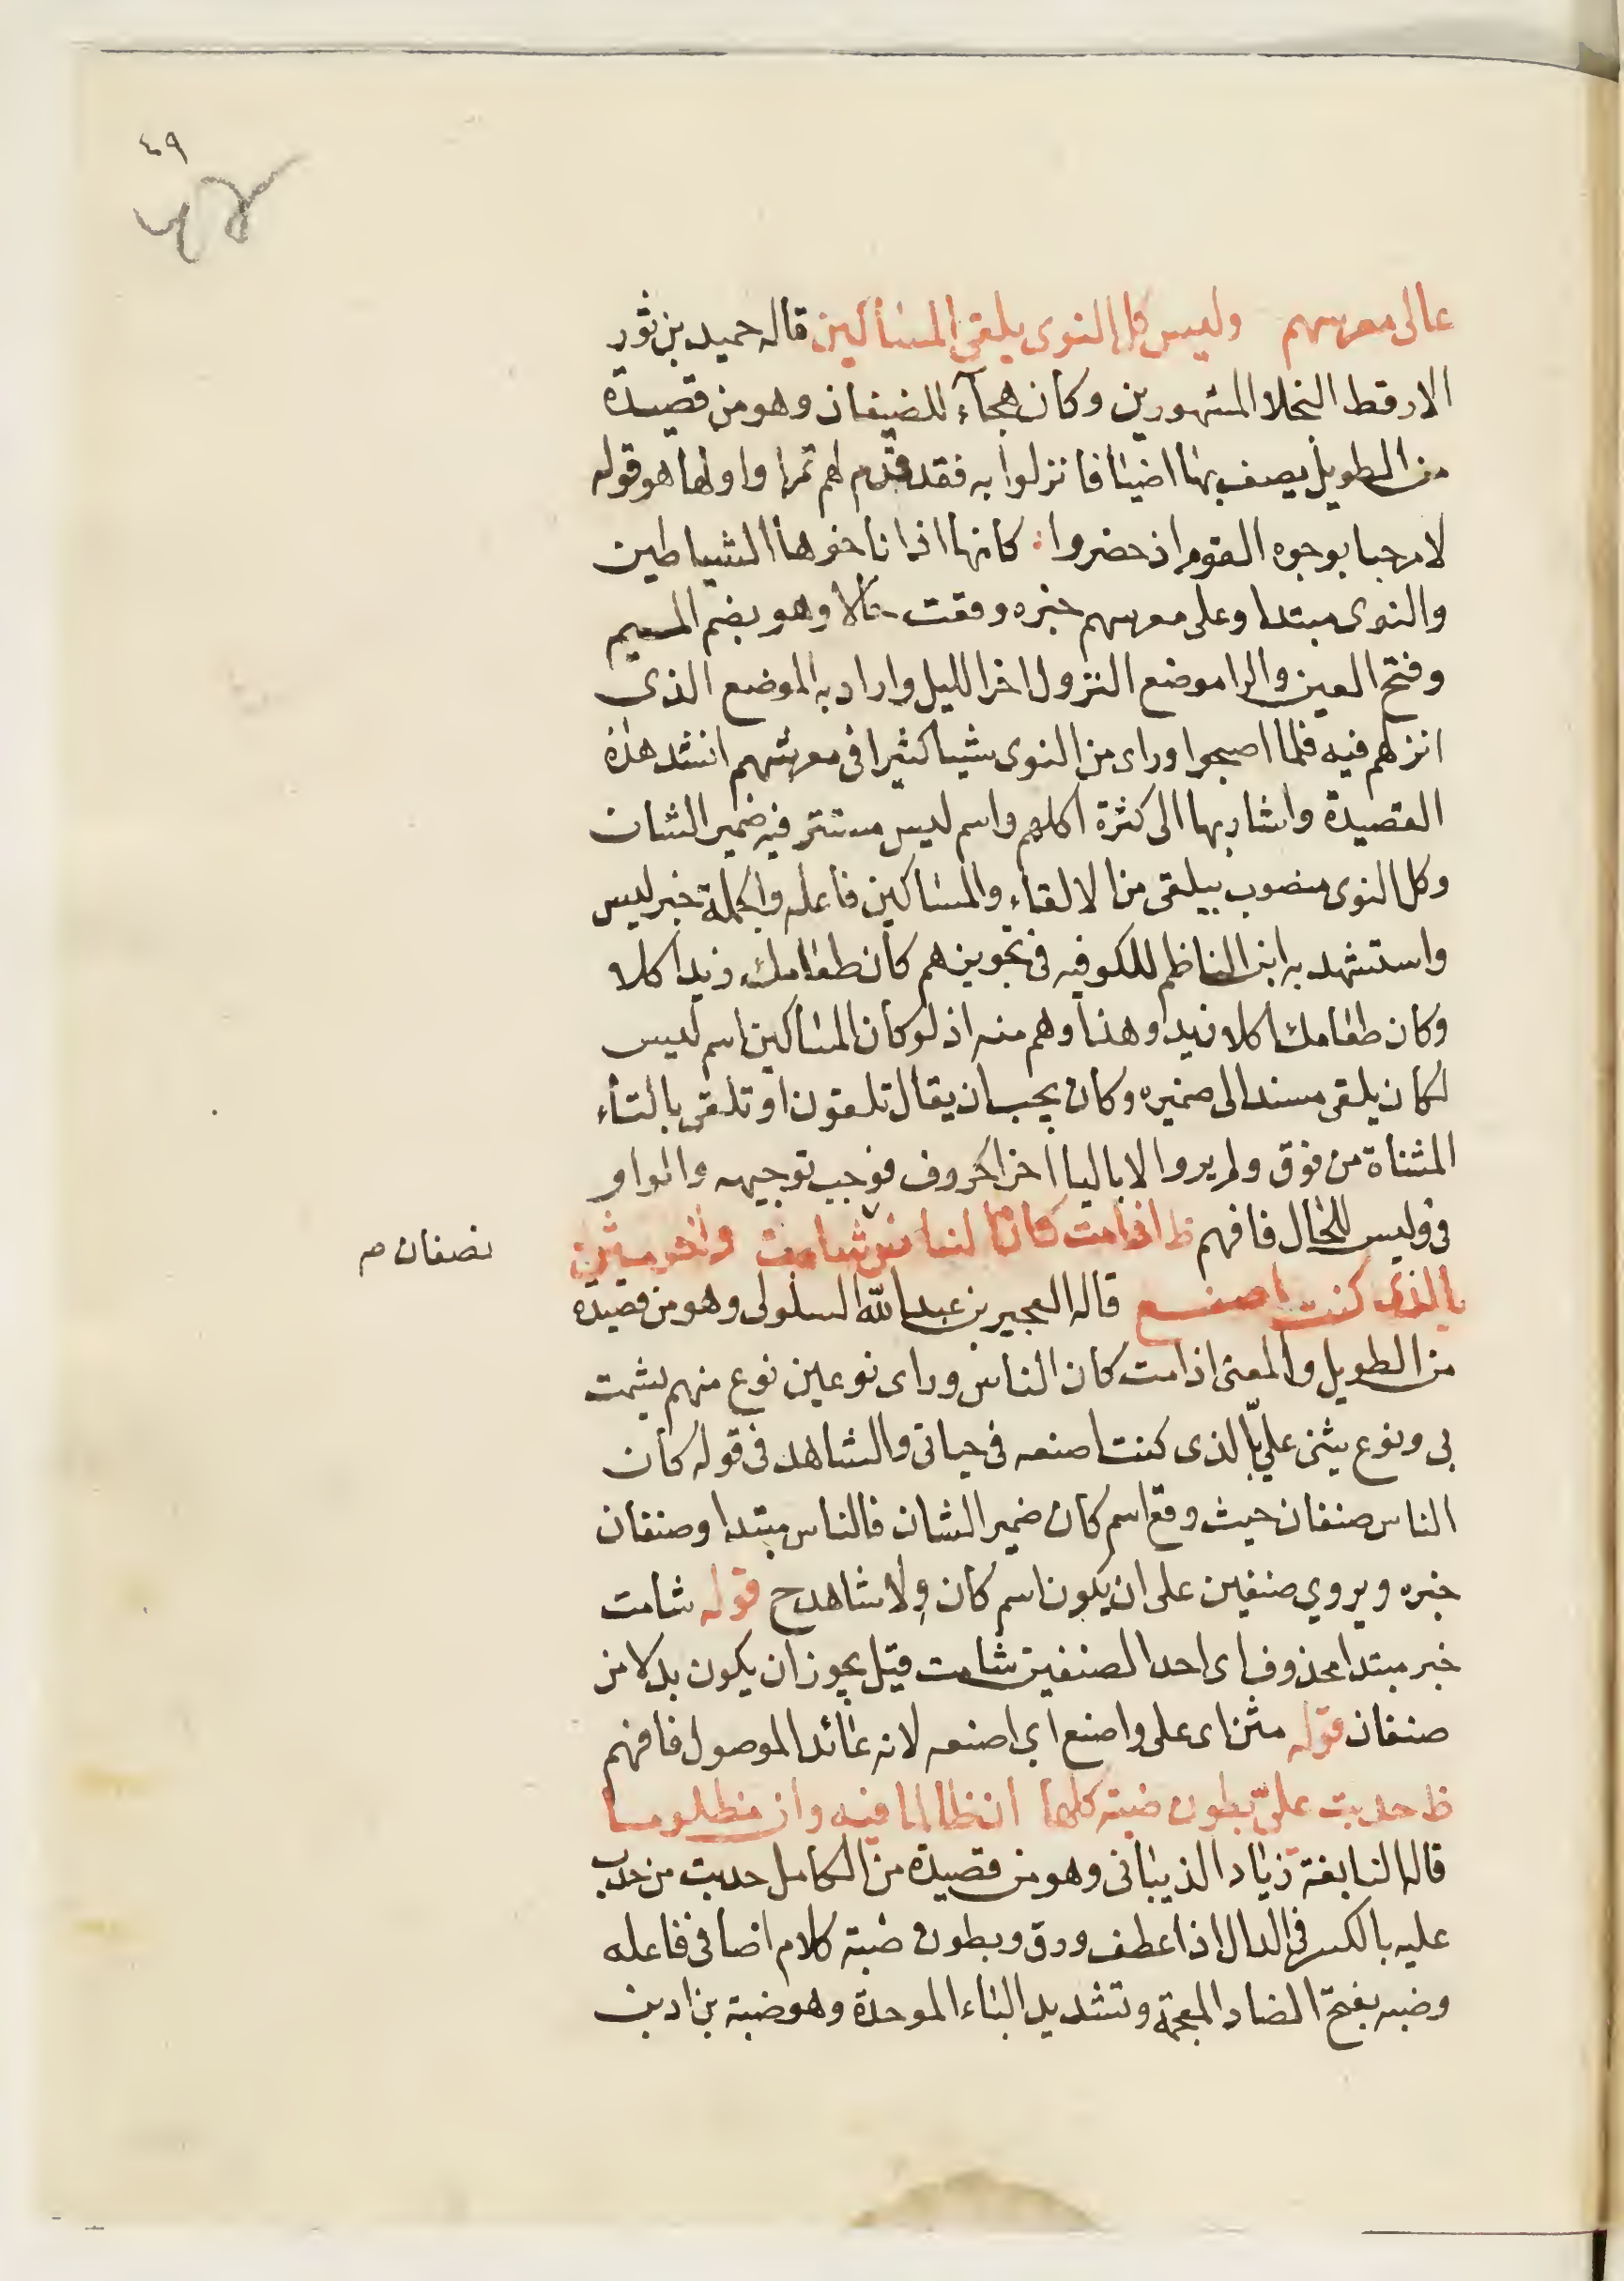 ٤٩
عالى معرسهم وليس كل النوى يلقى المساكين قاله حميد بن ثور
الارقط البخلا المشهورين وكان هجآء للضيفان وهو من قصيدة
من الطويل يصف بها اضيافا نزلوا به فقد قدم لهم تمرا واولها هو قوله
لا مرحبا بوجوه القوم اذ حضروا : كانها اذا ناخوها الشياطين
والنوى مبتدا وعلى معرسهم خبره وقعت حالا وهو بضم الميم
وفتح العين والرا موضع النزول اخر الليل واراد به الموضع الذى
انزلهم فيه فلما اصبحوا وراى من النوى شيا كثيرا فى معرسهم انشد هذه
القصيدة واشار بها الى كثرة اكلهم واسم ليس مستتر فيه ضمير الشان
وكل النوى منصوب بيلقى من الالقاء والمساكين فاعله والجملة خبر ليس
واستشهد به ابن الناظم للكوفيه فى تجويزهم كان طعامك زيد اكلا
وكان طعامك اكلا زيد وهذا وهم منه اذ لو كان المساكين اسم ليس
لكان يلقى مسندا الى ضميره وكان يجب ان يقال تلقون او تلقى بالتاء
المثناة من فوق ولم يروا الا باليا اخر الحروف فوجب توجيهه والواو
فى وليس للحال فافهم ظ اذا مت كان الناس شامت واخر مثن
نصفان صح
بالذى كنت اصنع قاله العجير بن عبد الله السلولى وهو من قصيدة
من الطويل والمعنى اذا مت كان الناس وراى نوعين نوع منهم يشمت
بى ونوع يثنى علىّ بالذى كنت اصنعه فى حياتى والشاهد فى قوله كان
الناس صنفان حيث وقع اسم كان ضمير الشان فالناس مبتدا وصنفان
خبره ويروي صنفين على ان يكون اسم كان ولا شاهد ح قوله شامت
خبر مبتدا محذوف اى احد الصنفين شامت قيل يجوز ان يكون بدلا من
صنفان قوله مثن اى على واصنع اى اصنعه لانه عائد الموصول فافهم
ظ حدبت علىّ بطون ضبة كلها ان ظالما فيه وان مظلوما
قاله النابغة زياد الذيبانى وهو من قصيدة من الكامل حدبت من حدب
عليه بالكسر فى الدال اذا عطف ورق وبطون ضبة كلام اضافى فاعله
وضبه بفتح الضاد المعجمة وتشديد الباء الموحدة وهو ضبة بن ادبن